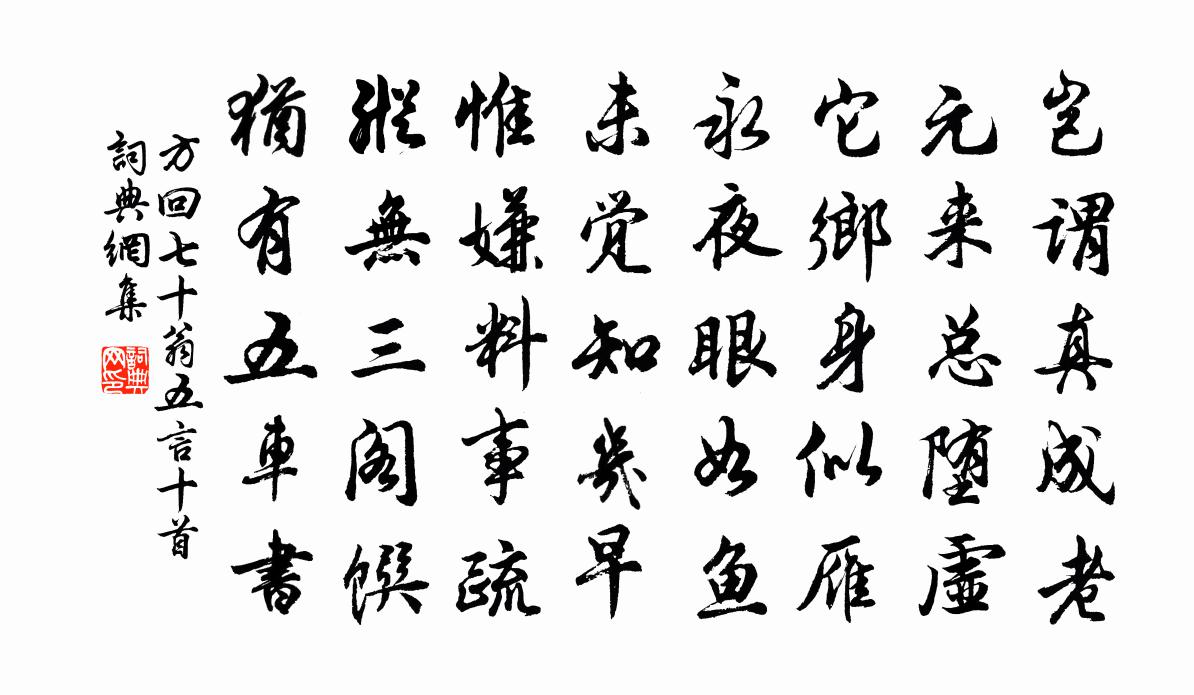 岂谓真成老
元来总堕虚
它鄉身似雁
永夜眼如鱼
未觉知幾早
惟嫌料事疏
縱無三阁馔
猶有五車書
方回七十翁五言十首
詞典網集
詞典网印